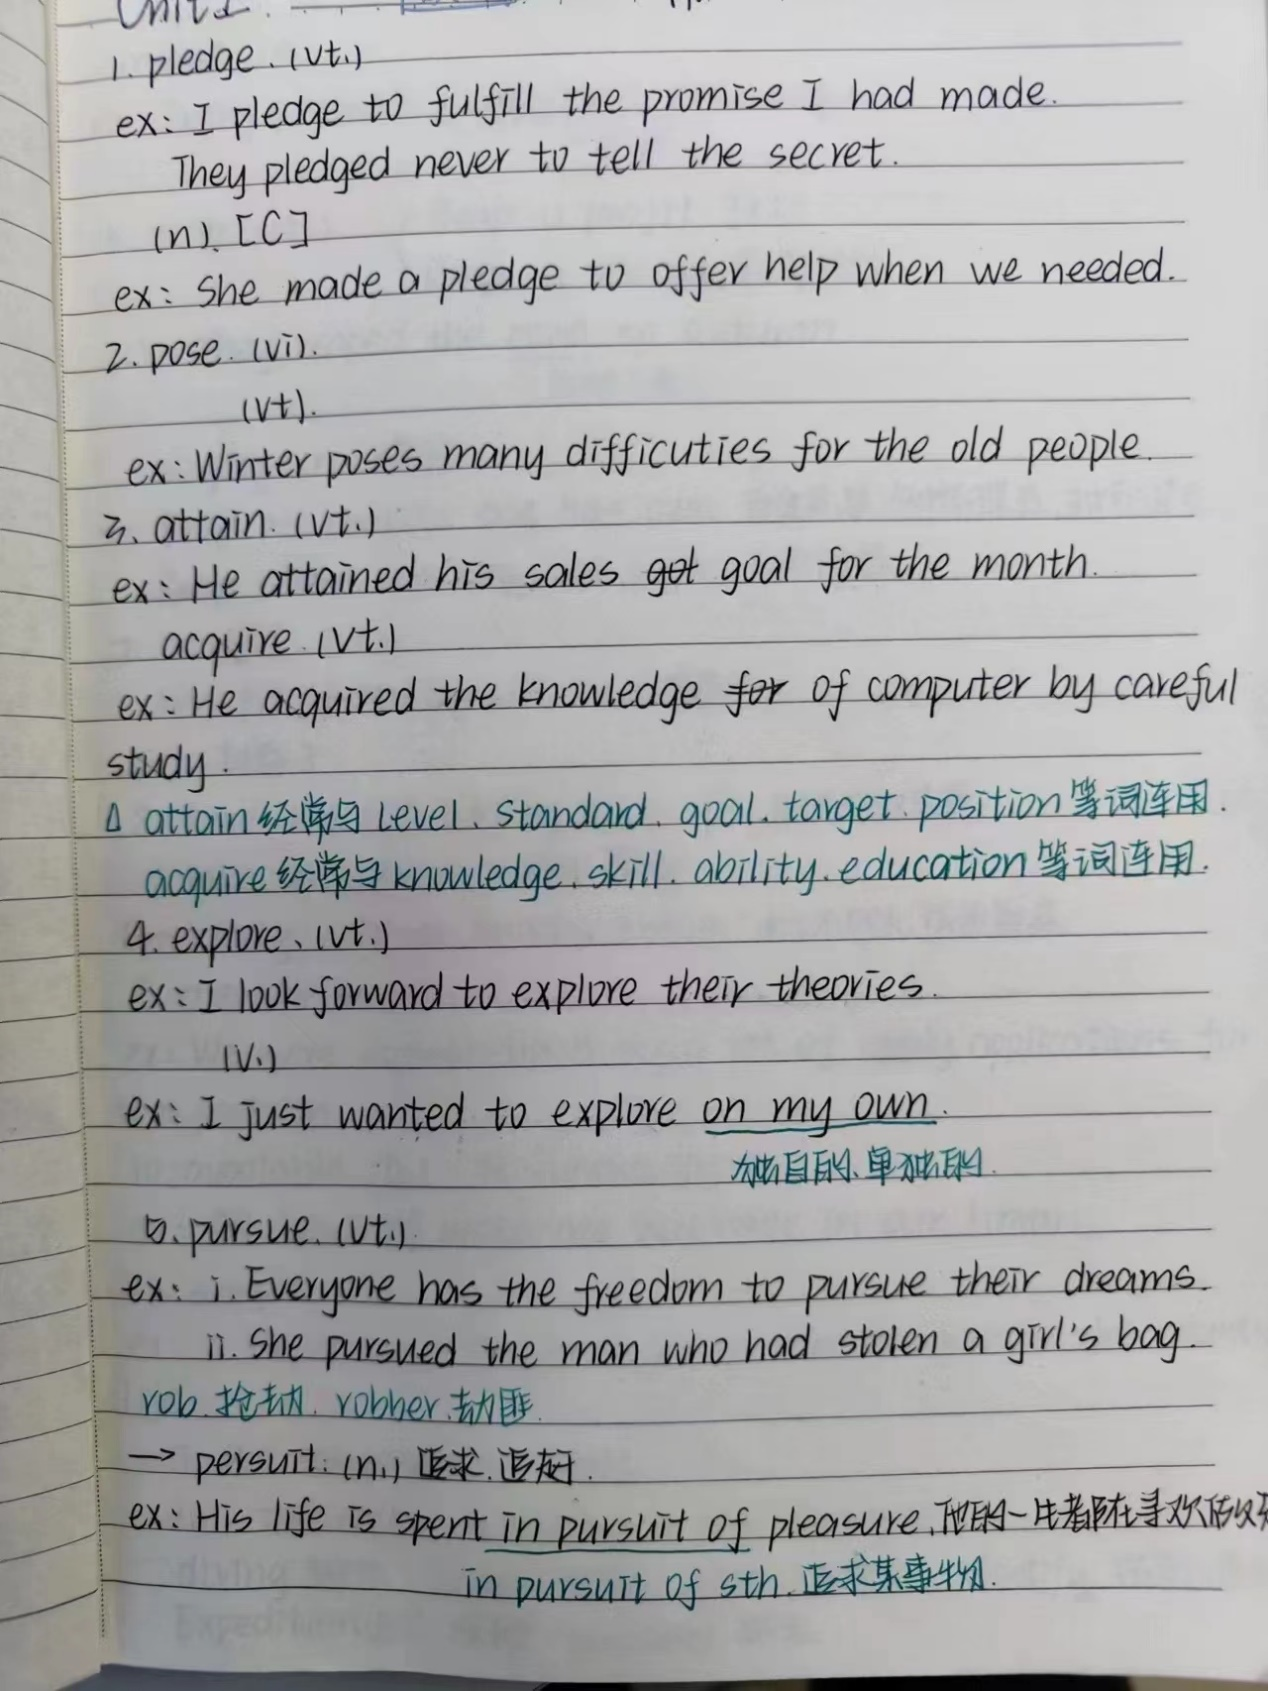 Unit 1.
1. pledge. (vt.)
ex: I pledge to fulfill the promise I had made.
They pledged never to tell the secret.
(n). [C]
ex: She made a pledge to offer help when we needed.
2. pose. (vi).
(vt).
ex: Winter poses many difficuties for the old people.
3. attain. (vt.)
ex: He attained his sales got goal for the month.
acquire. (vt.)
ex: He acquired the knowledge for of computer by careful
study.
△ attain经常与 level、standard、goal、target、position等词连用.
acquire经常与 knowledge、skill、ability、education等词连用.
4. explore、(vt.)
ex: I look forward to explore their theories.
(v.)
ex: I just wanted to explore on my own.
独自的、单独的.
5. pursue. (vt.)
ex: i. Everyone has the freedom to pursue their dreams.
ii. She pursued the man who had stolen a girl's bag.
rob. 抢劫. robber. 劫匪.
→ persuit. (n.) 追求. 追赶.
ex: His life is spent in pursuit of pleasure. 他的一生都在寻欢作
in pursuit of sth. 追求某事物.